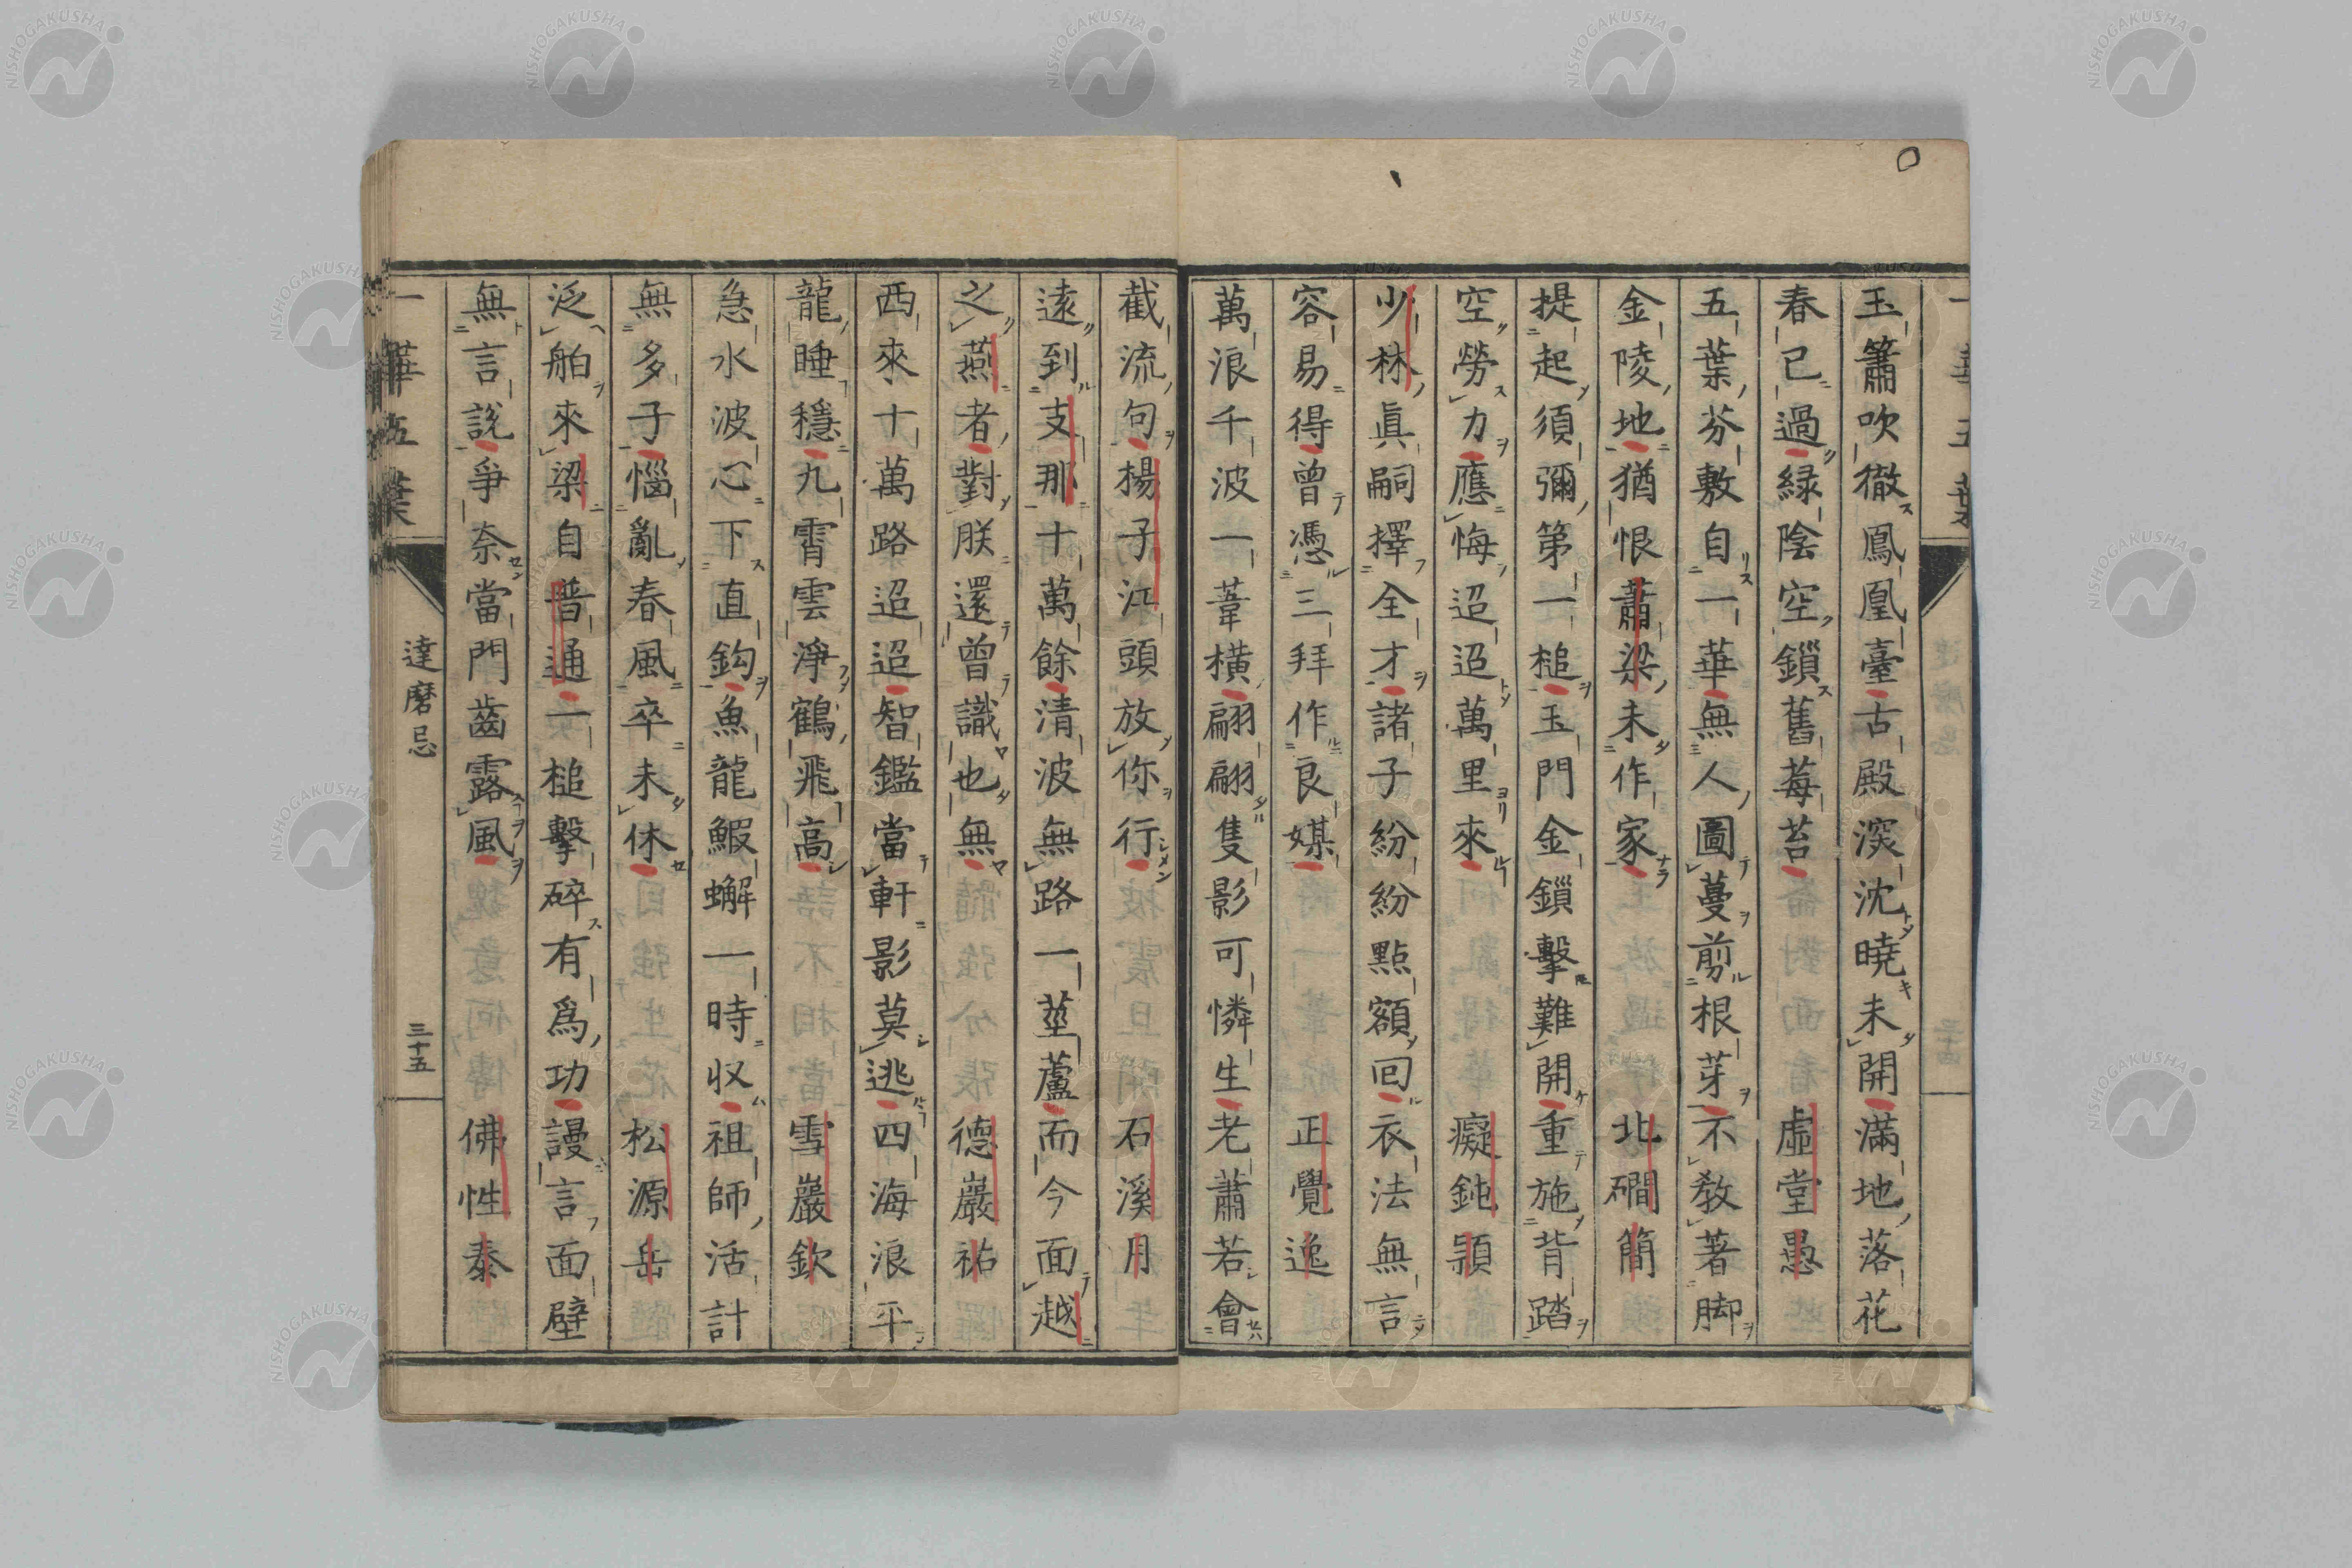 玉簫吹徹鳳凰臺古殿深沈曉未開滿地落花
春已過緑陰空鎖舊莓苔　虛堂愚
五葉芬敷自一華無人圖蔓剪根芽不教著脚
金陵地猶恨蕭梁未作家　北磵簡
提起須彌第一槌玉門金鎖擊難開重施背踏
空勞力應悔迢迢萬里來　癡鈍頴
少林眞嗣擇全才諸子紛紛點額回衣法無言
容易得曾憑三拜作良媒　正覺逸
萬浪千波一葦横翩翩隻影可憐生老蕭若會
截流句楊子江頭放你行　石溪月
遠到支那十萬餘清波無路一莖蘆而今面越
之燕者對朕還曾識也無　德巖祐
西來十萬路迢迢智鑑當軒影莫逃四海浪平
龍睡穩九霄雲淨鶴飛高　雪巖欽
急水波心下直鈎魚龍鰕蠏一時収祖師活計
無多子惱亂春風卒未休　松源岳
泛舶來梁自普通一槌擊碎有爲功謾言面壁
無言說爭奈當門齒露風　佛性泰
一華五葉
達磨忌
三十五
NISHOGAKUSHA